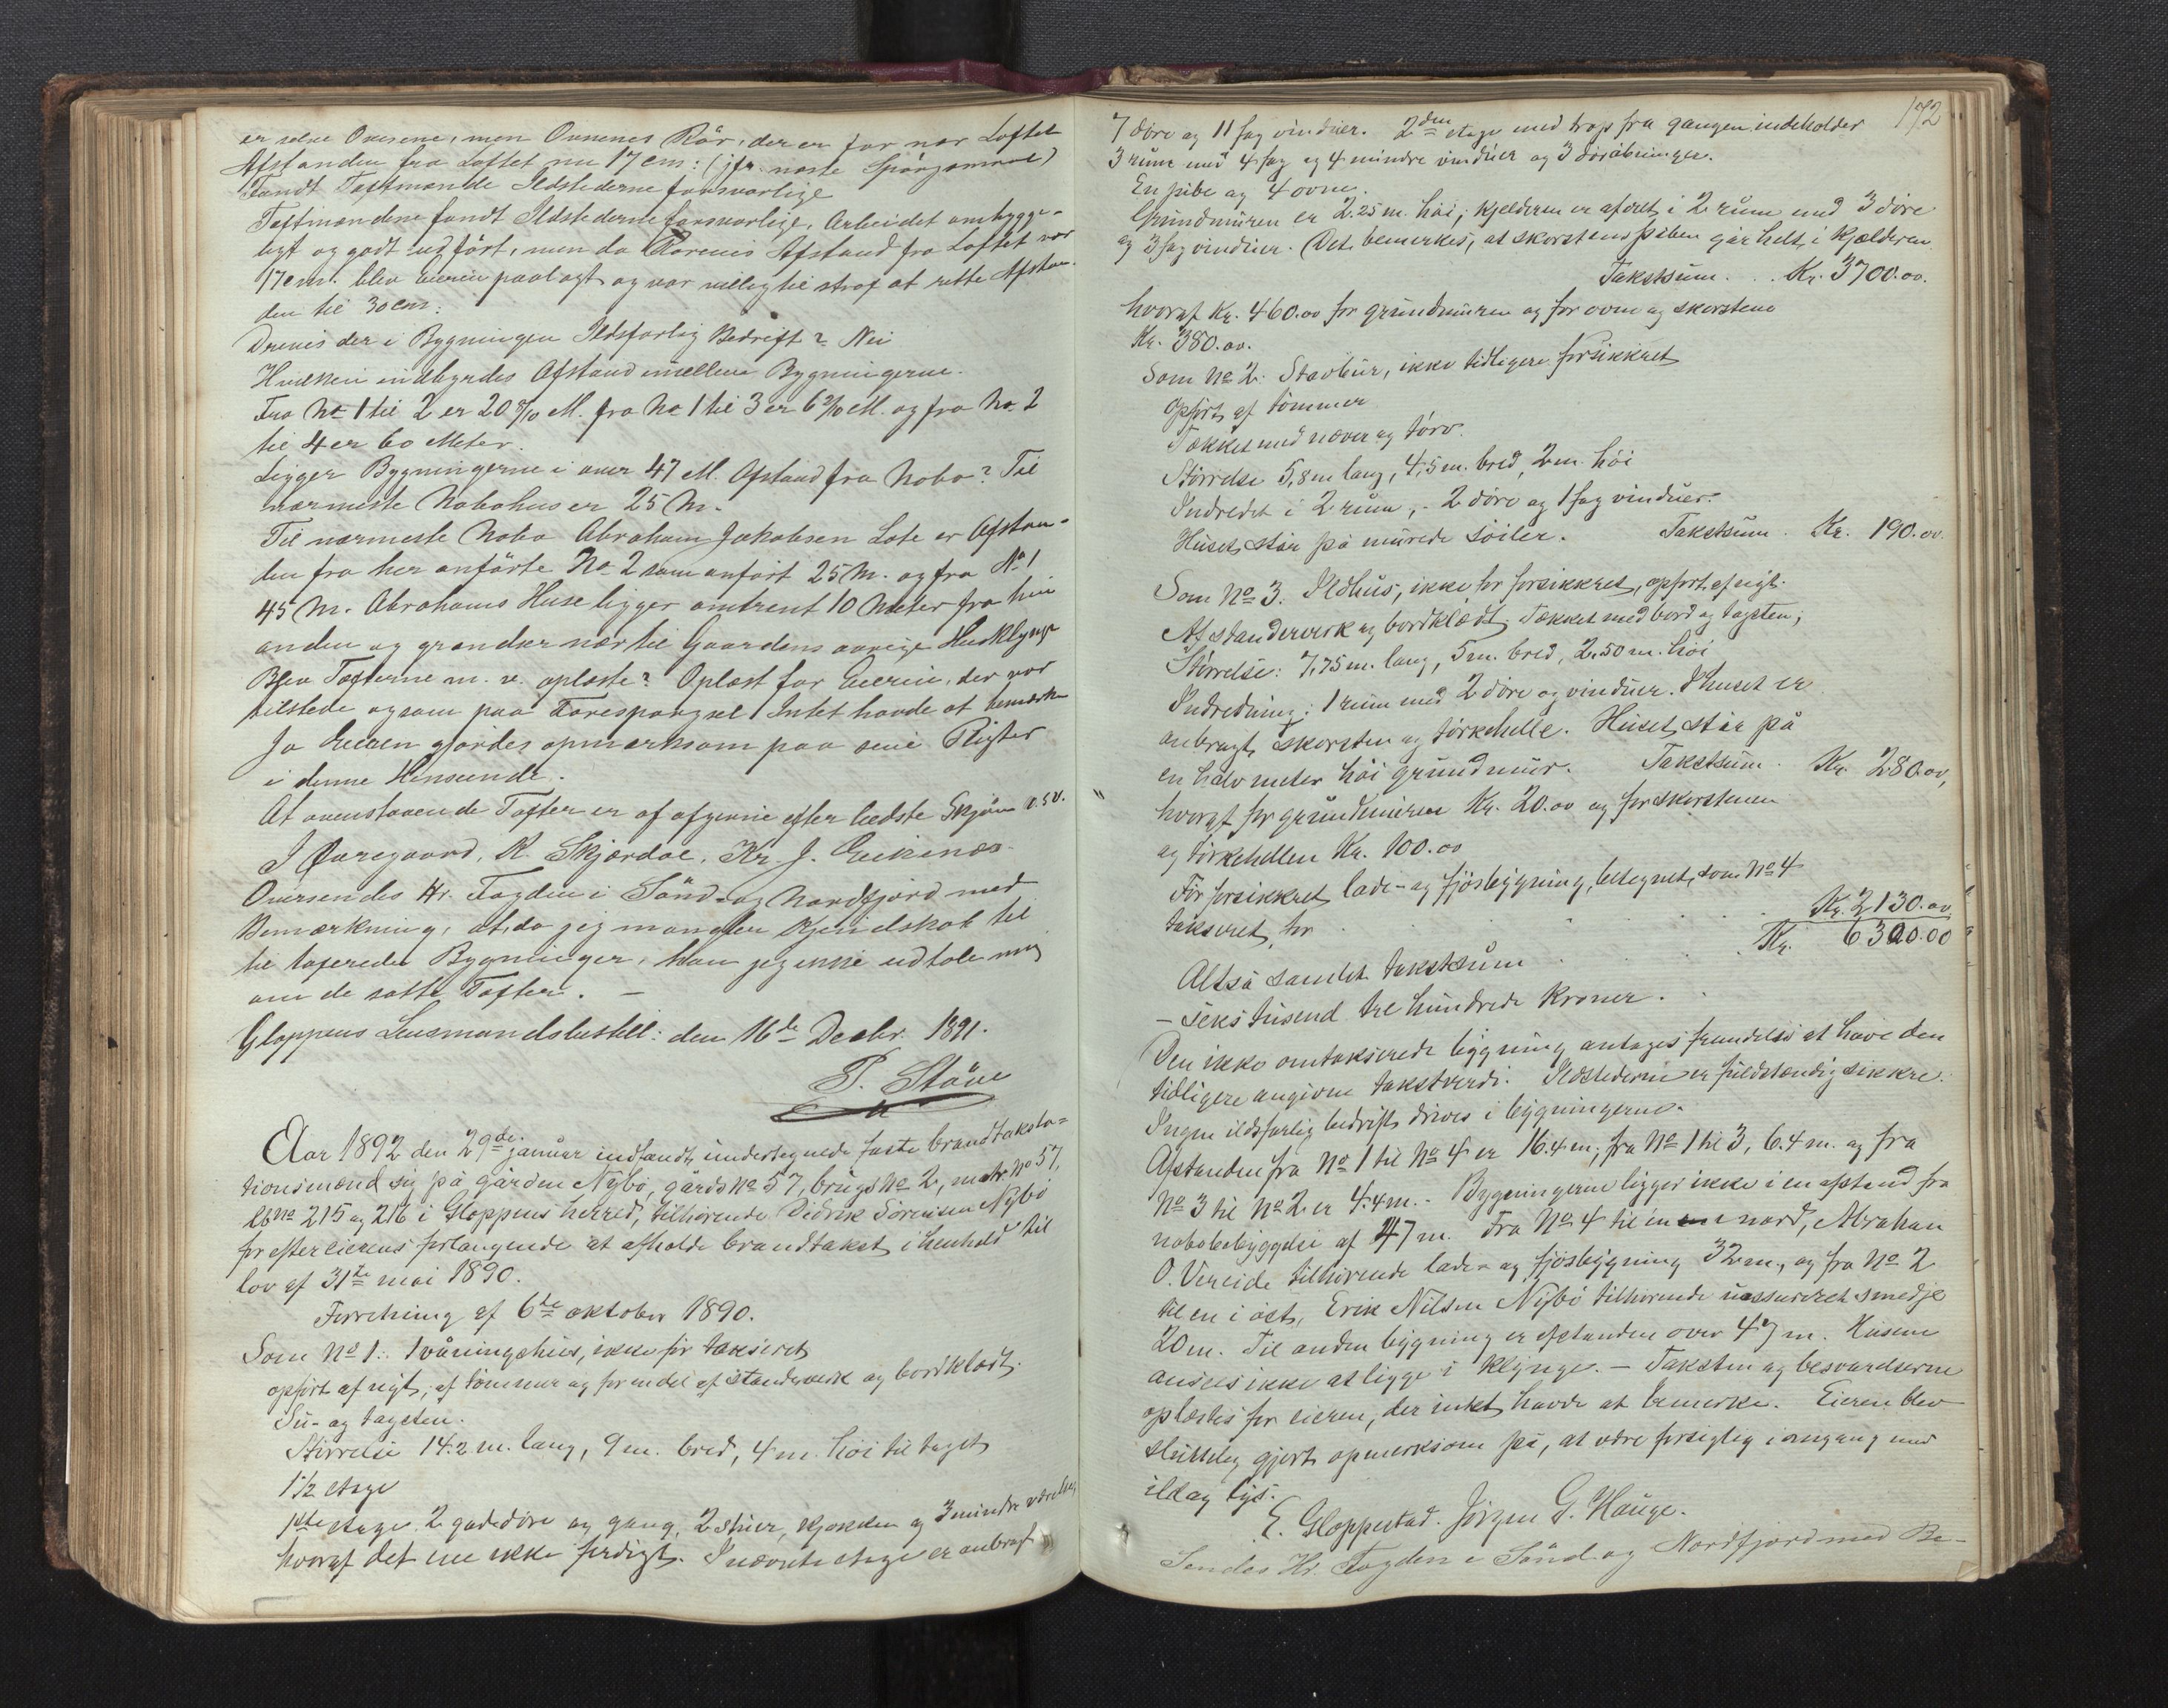 er selve Ovnene, men Ovnenes Rör, der er for nær Loftet
Afstanden fra Loftet nu 17 cm: (jfr. næste Spörgsmaal)
Fandt Taxtmænde Ildstederne forsvarlige
Taxtmændene fandt Ildstederne forsvarlige, Arbeidet omhygge-
ligt og godt udført, men da Rörenes Afstand fra Loftet var
17 cm. blev Eieren paalagt og var villig til strax at rette Afstan-
den til 30 cm:
Drives der i Bygningen Ildsfarlig Bedrift? Nei
Hvilken indbyrdes Afstand mellem Bygningerne.
Fra No 1 til 2 er 20 M. fra No 1 til 3 er 6 M. og fra No. 2
til 4 er 60 Meter.
Ligger Bygningerne i over 47 M. Afstand fra Nabo? Til
nærmeste Nabohus er 25 M.
Til nærmeste Nabo Abraham Jakobsen Lote er Afstan-
den fra her anförte No 2 som anfört 25 M. og fra No 1
45 M. Abrahams Huse ligger omtrent 10 Meter fra hin
anden og grændser nær til Gaardens övrige Husklynge
Blev Taxterne m. v. oplæste? Oplæst for Eieren, der var
tilstede og som paa Forespörgsel Intet havde at bemærke
Ja Eieren gjordes opmærksom paa sine Pligter
i denne Henseende.
At ovenstaaende Taxter er af afgivne efter bedste Skjön
I Øvregaard, R. Skjærdal, Kr. J. Eikenæs
Oversendes Hr. Fogden i Sönd- og Nordfjord med
Bemærkning, at, da jeg mangler Kjendskab til
de taxerede Bygninger, kan jeg ikke udtale mig
om de satte Taxter. —
Gloppens Lensmandsbestill: den 16de Decbr. 1891.
P. Stöve
Aar 1892 den 29de januar indfandt undertegnede faste brandtaksta-
tionsmænd sig på gården Nybö, gårds No 57, brugs No 2, matr. No 57,
lb no 215 og 216 i Gloppens herred, tilhørende Didrik Sörensen Nybö
for efter eierens forlangende at afholde brandtakst i henhold til
lov af 31te mai 1890.
Forretning af 6te oktober 1890.
Som No 1: 1 våningshus, ikke før takseret
opført af nyt, af tømmer og for en del af standerverk og bordklædt.
Su- og tagsten.
Størrelse 14.2 m. lang, 9 m. bred, 4 m. høi til taget
1 1/2 etage
1ste etage 2 gadedøre og gang, 2 stuer, kjøkken og 3 mindre værelser,
hvoraf det ene ikke færdigt. I nævnte etage er anbragt
172
7 døre og 11 fag vinduer. 2den etage med trap fra gangen indeholder
3 rum med 4 fag og 4 mindre vinduer og 3 døråbninger.
En pibe og 4 ovne.
Grundmuren er 2.25 m. høi; kjelderen er afdelt i 2 rum med 3 døre
og 3 fag vinduer. Det bemerkes, at skorstenspiben går helt i kjælderen.
Takstsum . . . Kr. 3700.00.
hvoraf Kr. 460.00 for grundmuren og for ovne og skorstene
Kr. 380.00.
Som No 2. Stavbur, ikke tidligere forsikkret
Opført af tømmer
Tækket med næver og tørv.
Størrelse 5,8 m lang, 4,5 m. bred, 2 m. høi
Indredet i 2 rum, - 2 døre og 1 fag vinduer.
Huset står på murede søiler. Takstsum . Kr. 190.00.
Som No 3. Ildhus, ikke før forsikkret, opført af nyt.
Af standerverk og bordklædt. Tækket med bord og tagsten;
Størrelse: 7,75 m. lang, 5 m. bred, 2.50 m. høi
Indredning: 1 rum med 2 døre og vinduer. I huset er
anbragt skorsten og tørkehelle. Huset står på
en halv meter høi grundmur. Takstsum . Kr. 280.00,
hvoraf for grundmuren Kr. 20.00 og for skorstenen
og tørkehellen Kr. 100.00
Før forsikkret lade- og fjøsbygning, betegnet som No 4
takseret for . . . . . Kr. 2130.00
Altså samlet takstsum . . . Kr. 6300.00
— seks tusend tre hundrede kroner.
Den ikke omtakserede bygning antages fremdeles at have den
tidligere angivne takstverdi. Ildstederne er fuldstændig sikkre.
Ingen ildsfarlig bedrift drives i bygningerne.
Afstanden fra No 1 til No 4 er 16.4 m; fra No 1 til 3, 6.4 m. og fra
No 3 til No 2 er 4.4 m. - Bygningerne ligger ikke i en afstand fra
nabobebyggelse af 47 m. Fra No 4 til en i nord, Abraham
O. Vereide tilhørende lade- og fjøsbygning 32 m., og fra No 2
til en i øst, Erik Nilsen Nybö tilhørende uassureret smedje
20 m. Til anden bygning er afstanden over 47 m. Husene
ansees ikke at ligge i klynge. — Taksten og besvarelserne
oplæstes for eieren, der intet havde at bemerke. Eieren blev
sluttelig gjort opmerksom på, at være forsigtig i omgang med
ild og lys.
E. Gloppestad. Jørgen G. Hauge.
Sendes Hr. Fogden i Sönd- og Nordfjord med Be-